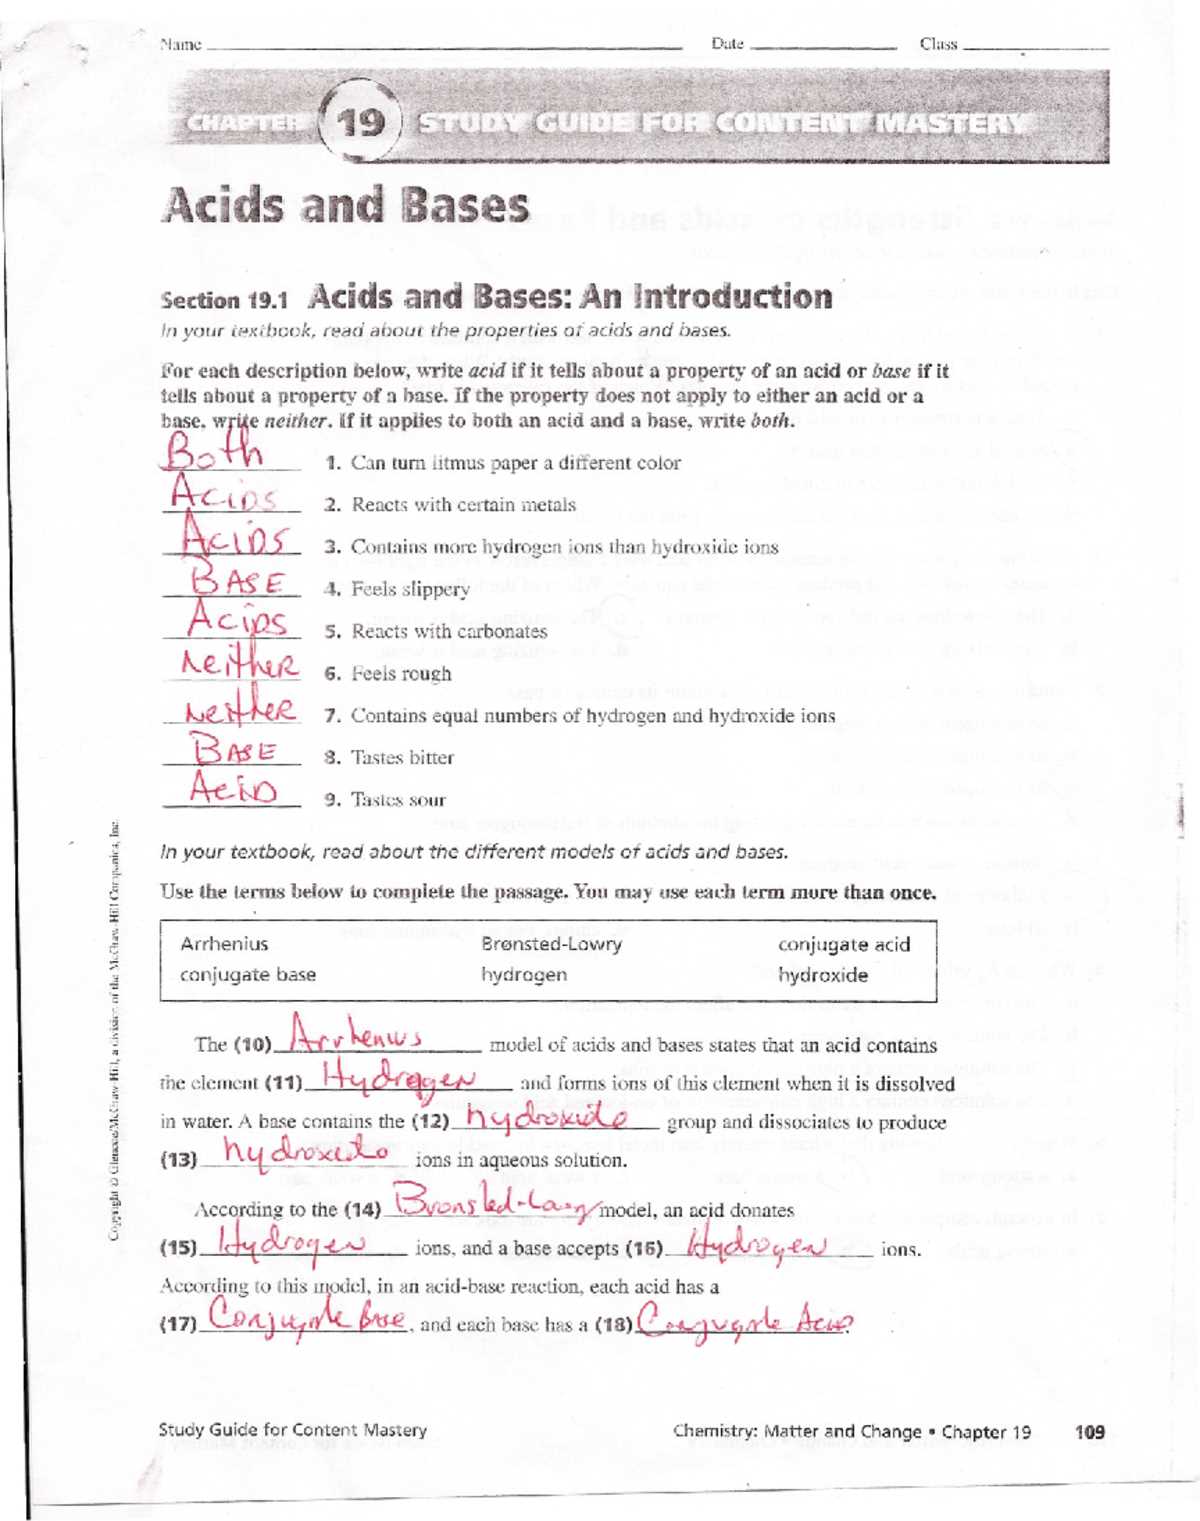 Name Date Class
CHAPTER 19 STUDY GUIDE FOR CONTENT MASTERY
Acids and Bases
Section 19.1 Acids and Bases: An Introduction
In your textbook, read about the properties of acids and bases.
For each description below, write acid if it tells about a property of an acid or base if it
tells about a property of a base. If the property does not apply to either an acid or a
base, write neither. If it applies to both an acid and a base, write both.
Both 1. Can turn litmus paper a different color
Acids 2. Reacts with certain metals
Acids 3. Contains more hydrogen ions than hydroxide ions
BASE 4. Feels slippery
Acids 5. Reacts with carbonates
Neither 6. Feels rough
Neither 7. Contains equal numbers of hydrogen and hydroxide ions
BASE 8. Tastes bitter
Acid 9. Tastes sour
In your textbook, read about the different models of acids and bases.
Use the terms below to complete the passage. You may use each term more than once.
Arrhenius Brønsted-Lowry conjugate acid
conjugate base hydrogen hydroxide
The (10) Arrhenius model of acids and bases states that an acid contains
the element (11) Hydrogen and forms ions of this element when it is dissolved
in water. A base contains the (12) hydroxide group and dissociates to produce
(13) hydroxide ions in aqueous solution.
According to the (14) Bronsted-Lowry model, an acid donates
(15) Hydrogen ions, and a base accepts (16) Hydrogen ions.
According to this model, in an acid-base reaction, each acid has a
(17) Conjugate Base, and each base has a (18) Conjugate Acid.
Copyright © Glencoe/McGraw-Hill, a division of the McGraw-Hill Companies, Inc.
Study Guide for Content Mastery Chemistry: Matter and Change • Chapter 19 109